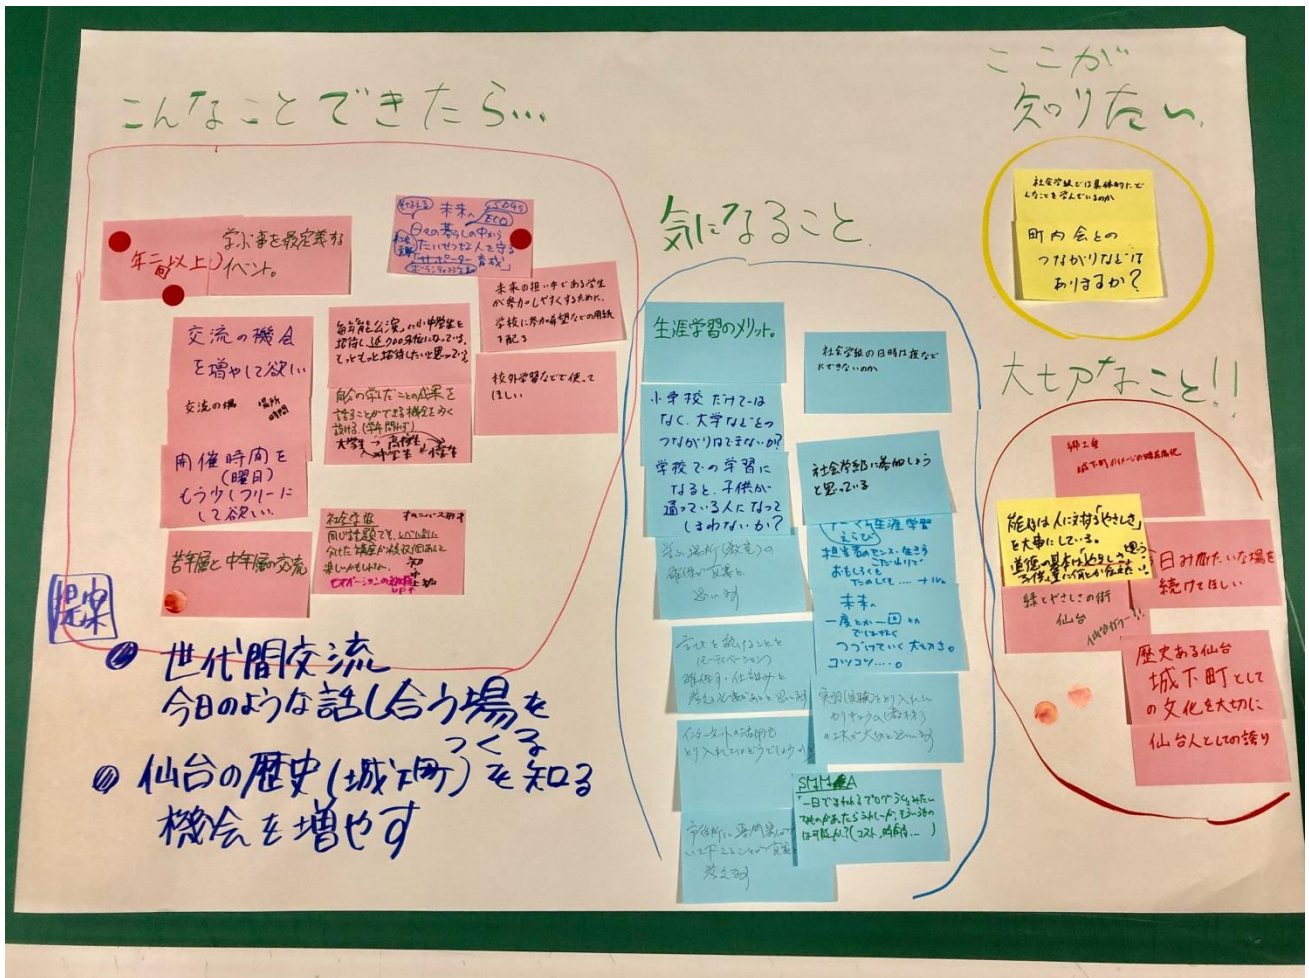 こんなことできたら…
年二回以上
学ぶ事を最定義する
イベント。
未来へ
SDGs
ECO
日々の暮らしの中から
たいせつな人を守る
「サポーター育成」
未来の担い手である学生
が参加しやすくするために、
学校に参加希望などの用紙
を配る
交流の機会
を増やして欲しい
交流の場 場所
時間
開催時間を
(曜日)
もう少しフリーに
して欲しい
若年層と中年層の交流
招待し、近く
もっともっと招待したいと思っている。
自分の学んだことの成果を
話すことができる機会を多く
設ける。(学年問わず)
大学生→高校生
中学生 小学生
校外学習などで使って
ほしい
社会学級
同じ話題でも、レベル別に
分けた講座が複数個あると
楽しいかもしれない。
モチベーションの
UP↑
提案
世代間交流
今日のような話し合う場を
つくる
仙台の歴史(城下町)を知る
機会を増やす
気になること
生涯学習のメリット。
小学校だけでは
なく、大学などとの
つながりはできないか?
学校での学習に
なると、子供が
通っている人になって
しまわないか?
学ぶ場所(教室)の
確保が必要と
思います
インターネットの活用も
とり入れてはどうでしょうか
社会学級の日時は夜など
にできないのか
社会学級に参加しよう
と思っている
生涯学習
えらび
担当者のセンス・生き方
こだわりで
おもしろくも
たのしくも……
未来へ
一度とか一回
ではなく
つづけていく大切さ。
コツコツ…。
実習(実験)をとり入れた
カリキュラム(教材)
SMMA
「一日でまわれるプログラム」みたい
なものがあったらうれしいが、そういうの
は可能か?(コスト、時間等…)
ここが
知りたい
社会学級では具体的にど
んなことを学んでいるのか
町内会との
つながりなどは
ありますか?
大切なこと!!
城下町のイメージの
能は人に対する「やさしさ」
を大事にしている。
道徳の基本は「やさしさ」と思う
今日みたいな場を
続けてほしい
緑とやさしさの街
仙台
歴史ある仙台
城下町として
の文化を大切に
仙台人としての誇り